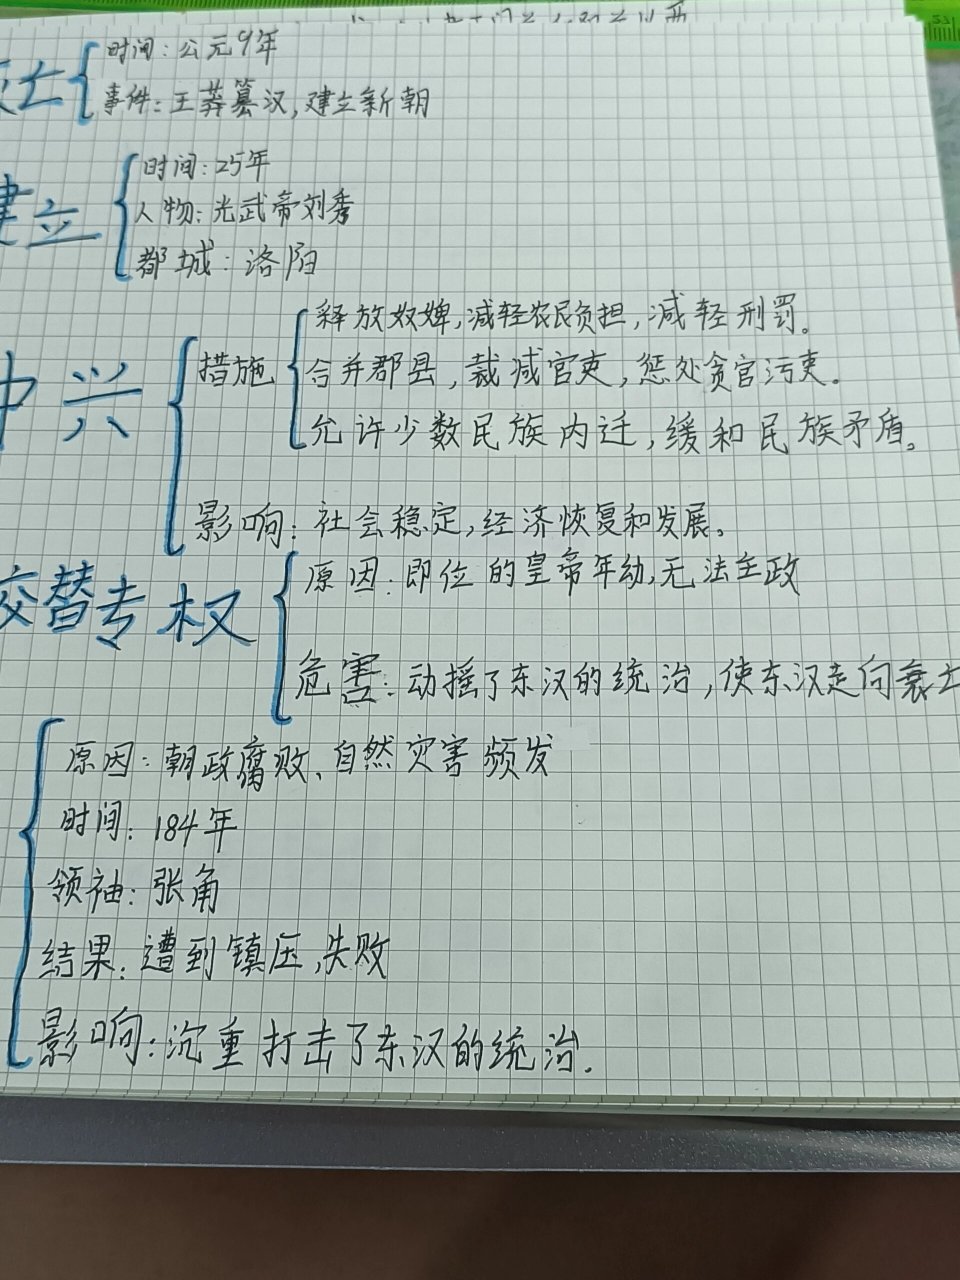 时间：公元9年
亡
事件：王莽篡汉，建立新朝
时间：25年
建立
人物：光武帝刘秀
都城：洛阳
释放奴婢，减轻农民负担，减轻刑罚。
中兴
措施
合并郡县，裁减官吏，惩处贪官污吏。
允许少数民族内迁，缓和民族矛盾。
影响：社会稳定，经济恢复和发展。
交替专权
原因：即位的皇帝年幼，无法主政
危害：动摇了东汉的统治，使东汉走向衰亡
原因：朝政腐败、自然灾害频发
时间：184年
领袖：张角
结果：遭到镇压，失败
影响：沉重打击了东汉的统治.